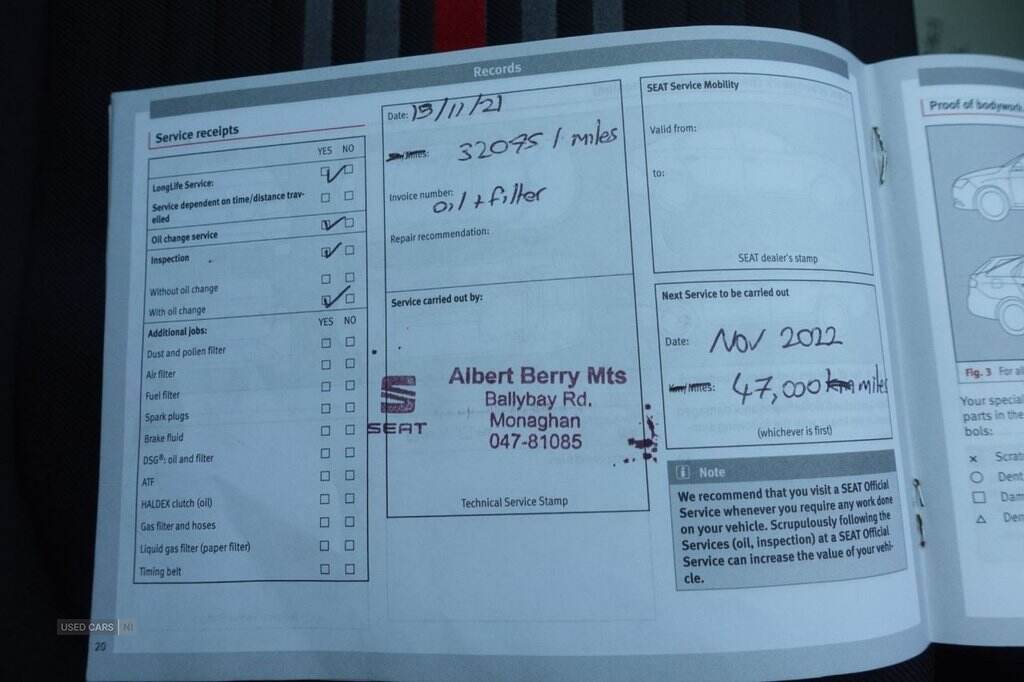 Records
Service receipts
YES NO
LongLife Service:
Service dependent on time/distance trav-
elled
Oil change service
Inspection
Without oil change
With oil change
Additional jobs: YES NO
Dust and pollen filter
Air filter
Fuel filter
Spark plugs
Brake fluid
DSG®: oil and filter
ATF
HALDEX clutch (oil)
Gas filter and hoses
Liquid gas filter (paper filter)
Timing belt
Date: /11/21
miles
Invoice number:
oil + filter
Repair recommendation:
Service carried out by:
SEAT
Albert Berry Mts
Ballybay Rd.
Monaghan
047-81085
Technical Service Stamp
SEAT Service Mobility
Valid from:
to:
SEAT dealer's stamp
Next Service to be carried out
Date: Nov 2022
Km/Miles: 47,000 km miles
(whichever is first)
i Note
We recommend that you visit a SEAT Official
Service whenever you require any work done
on your vehicle. Scrupulously following the
Services (oil, inspection) at a SEAT Official
Service can increase the value of your vehi-
cle.
20
Proof of bodywork
Fig. 3 For al
Your special
parts in the
bols:
Scrat
Dent
Dam
Den
USED CARS NI